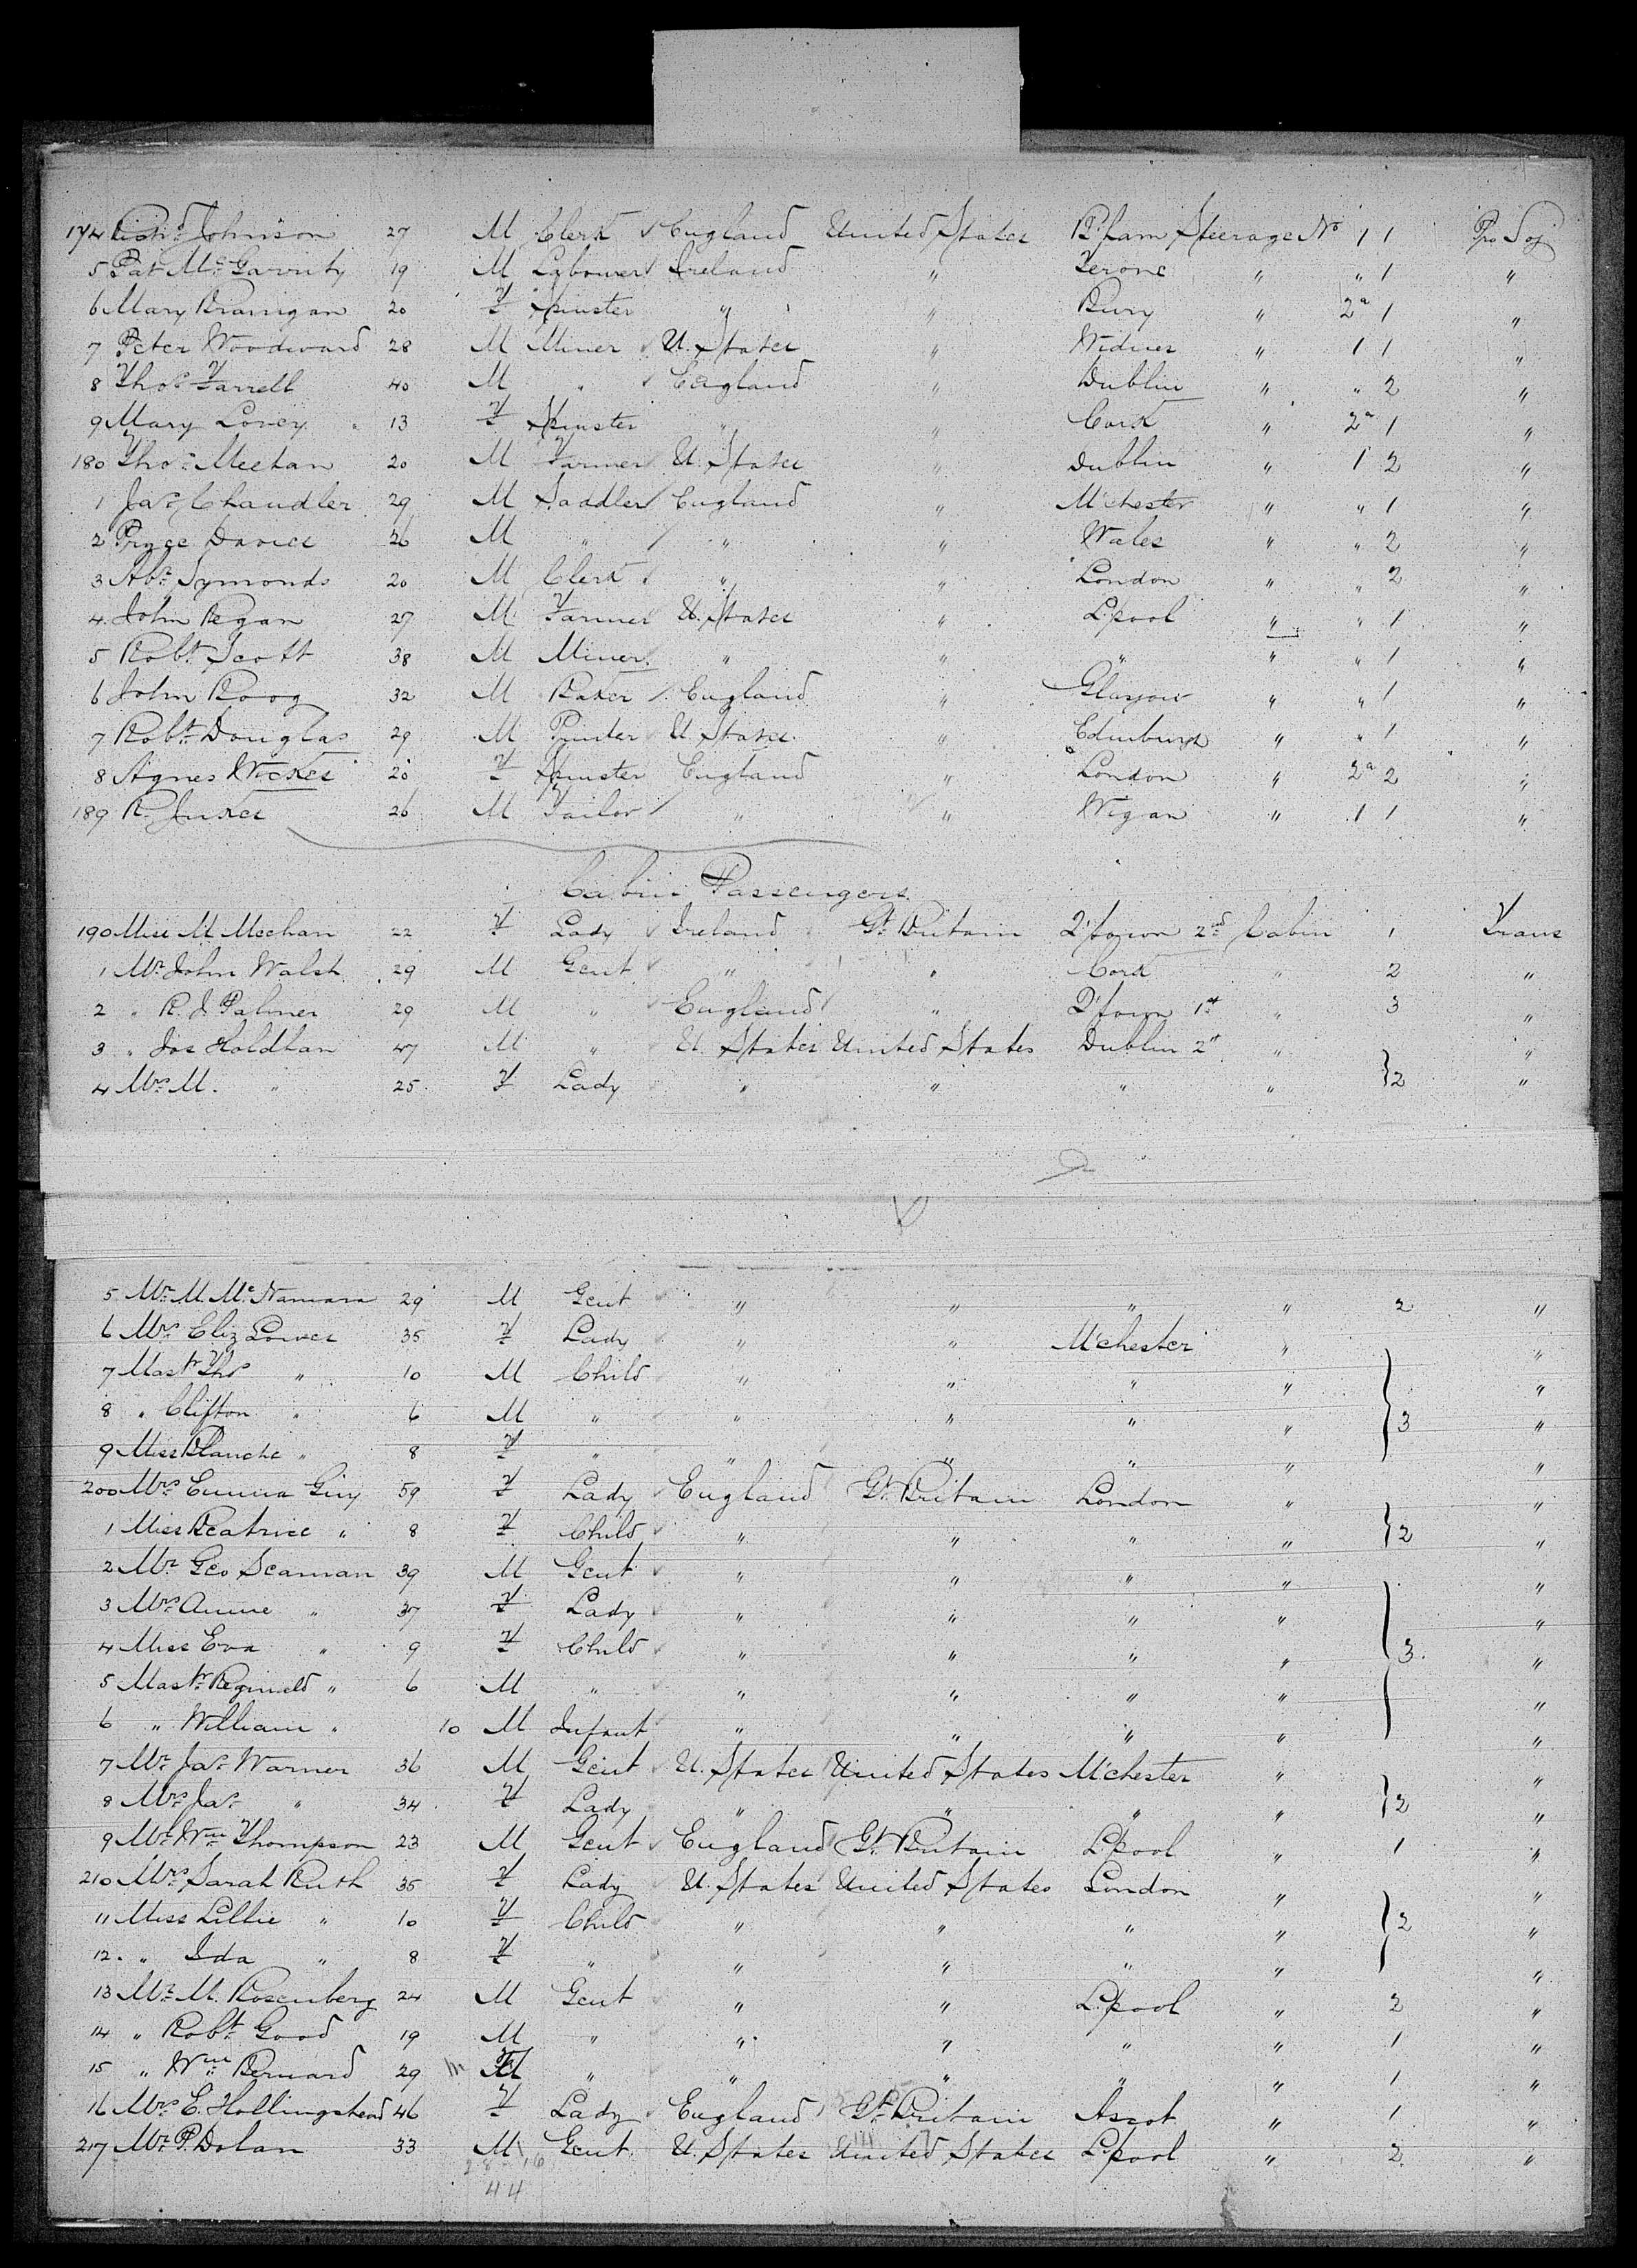 174 Richd Johnson 27 M Clerk England United States B'ham Steerage No 1 1 Pro Soj
5 Pat McGarrity 19 M Labourer Ireland " Tyrone " " 1 "
6 Mary Branigan 20 F Spinster " " Bury " 2a 1 "
7 Peter Woodward 28 M Miner U. States " Widnes " 1 1 "
8 Thos Farrell 40 M " England " Dublin " " 2 "
9 Mary Lovey 13 F Spinster " " Cork " 2a 1 "
180 Thos Meehan 20 M Farmer U. States " Dublin " 1 2 "
1 Jas Chandler 29 M Saddler England " M'chester " " 1 "
2 Pryce Davies 26 M " " " Wales " " 2 "
3 Abm Symonds 20 M Clerk " " London " " 2 "
4 John Regan 27 M Farmer U. States " L'pool " " 1 "
5 Robt Scott 38 M Miner " " " " " 1 "
6 John Boog 32 M Baker England " Glasgow " " 1 "
7 Robt Douglas 29 M Printer U. States " Edinburgh " " 1 "
8 Agnes Wickes 20 F Spinster England " London " 2a 2 "
189 R. Jukes 26 M Tailor " " Wigan " 1 1 "
Cabin Passengers
190 Miss M Meehan 22 F Lady Ireland Gt Britain Q'town 2nd Cabin 1 Trans
1 Mr John Walsh 29 M Gent " " Cork " 2 "
2 " R. J. Palmer 29 M " England " Q'town 1st " 3 "
3 " Jos Holdhan 47 M " U. States United States Dublin 2d " "
4 Mrs M. " 25 F Lady " " " " } 2 "
5 Mr M. McNamara 29 M Gent " " " " 2 "
6 Mrs Eliz Lower 35 F Lady " " M'chester " "
7 Mastr Thos " 10 M Child " " " " "
8 " Clifton " 6 M " " " " " } 3 "
9 Miss Blanche " 8 F " " " " " "
200 Mrs Emma Guy 59 F Lady England Gt Britain London " "
1 Miss Beatrice " 8 F Child " " " " } 2 "
2 Mr Geo Seaman 39 M Gent " " " " "
3 Mrs Annie " 37 F Lady " " " " "
4 Miss Eva " 9 F Child " " " " } 3 "
5 Mastr Reginald " 6 M " " " " " "
6 " William " 10 M Infant " " " " "
7 Mr Jas Warner 36 M Gent U. States United States M'chester " "
8 Mrs Jas " 34 F Lady " " " " } 2 "
9 Mr Wm Thompson 23 M Gent England Gt Britain L'pool " 1 "
210 Mrs Sarah Ruth 35 F Lady U. States United States London " "
11 Miss Lillie " 10 F Child " " " " } 2 "
12 " Ida " 8 F " " " " " "
13 Mr M. Rosenberg 24 M Gent " " L'pool " 2 "
14 " Robt Good 19 M " " " " " 1 "
15 " Wm Bernard 29 m M " " " " " 1 "
16 Mrs E. Hollingshead 46 F Lady England Gt Britain Ascot " 1 "
217 Mr P. Dolan 33 M Gent U. States United States L'pool " 2 "
28 16
44